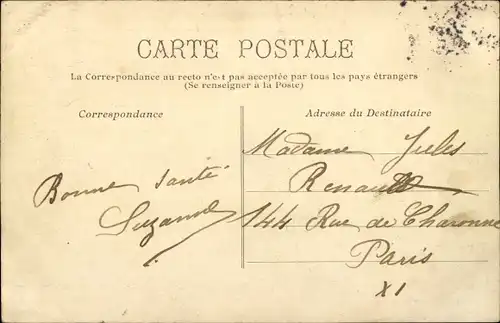 CARTE POSTALE
La Correspondance au recto n'est pas acceptée par tous les pays étrangers
(Se renseigner à la Poste)
Correspondance
Adresse du Destinataire
Bonne santé
Suzanne
Madame Jules
Renault
144 Rue de Charonne
Paris
XI